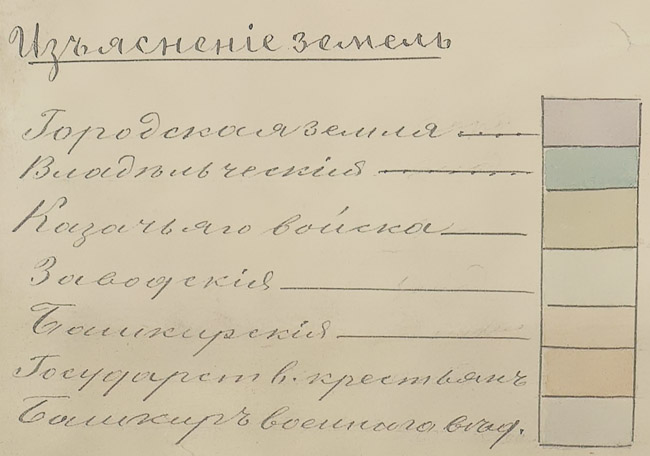 Изъясненіе земель
Городская земля
Владѣльческія
Казачьяго войска
Заводскія
Башкирскія
Государств. крестьянъ
Башкиръ военного вѣд.